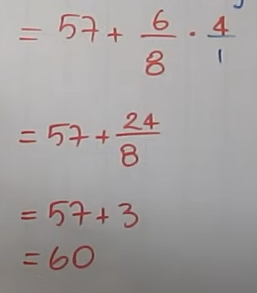 = 57 + 6/8 · 4/1
= 57 + 24/8
= 57 + 3
= 60